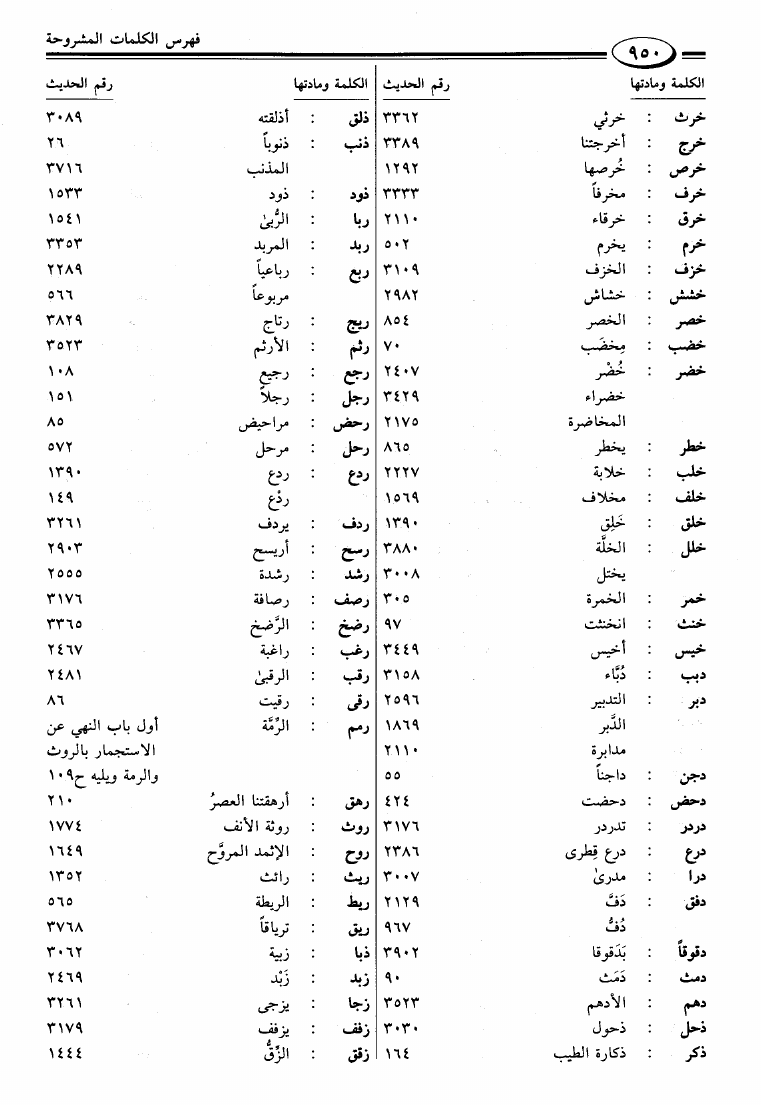 فهرس الكلمات المشروحة
٩٥٠
الكلمة ومادتها رقم الحديث
خرث : خرثي ٣٣٦٢
خرج : أخرجتنا ٣٣٨٩
خرص : خُرصها ١٢٩٢
خرف : مخرفاً ٣٣٣٣
خرق : خرقاء ٢١١٠
خرم : يخرم ٥٠٢
خزف : الخزف ٣١٠٩
خشش : خشاش ٢٩٨٢
خصر : الخصر ٨٥٤
خضب : مِخضَب ٧٠
خضر : خُضْر ٢٤٠٧
خضراء ٣٤٢٩
المخاضرة ٢١٧٥
خطر : يخطر ٨٦٥
خلب : خلابة ٢٢٢٧
خلف : مخلاف ١٥٦٩
خلق : خَلِق ١٣٩٠
خلل : الخلَّة ٣٨٨٠
يختل ٣٠٠٨
خمر : الخمرة ٣٠٥
خنث : انخنثت ٩٧
خيس : أخيس ٣٤٤٩
دبب : دُبَّاء ٣١٥٨
دبر : التدبير ٢٥٩٦
الدَّبر ١٨٦٩
مدابرة ٢١١٠
دجن : داجناً ٥٥
دحض : دحضت ٤٢٤
دردر : تدردر ٣١٧٦
درع : درع قِطرى ٢٣٨٦
درا : مدرىٰ ٣٠٠٧
دفق : دَفَّ ٢١٢٩
دُفُّ ٩٦٧
دقوقاً : بَدَقوقا ٣٩٠٢
دمث : دَمَث ٩٠
دهم : الأدهم ٣٥٢٣
ذحل : ذحول ٣٠٣٠
ذكر : ذكارة الطيب ١٦٤
الكلمة ومادتها رقم الحديث
ذلق : أذلقته ٣٠٨٩
ذنب : ذنوباً ٢٦
المذنب ٣٧١٦
ذود : ذود ١٥٣٣
ربا : الرُّبىٰ ١٥٤١
ربد : المربد ٣٣٥٣
ربع : رباعياً ٢٢٨٩
مربوعاً ٥٦٦
ريج : رتاج ٣٨٢٩
رثم : الأرثم ٣٥٢٣
رجع : رجيع ١٠٨
رجل : رجلاً ١٥١
رحض : مراحيض ٨٥
رحل : مرحل ٥٧٢
ردع : ردع ١٣٩٠
ردْع ١٤٩
ردف : يردف ٣٢٦١
رسح : أريسح ٢٩٠٣
رشد : رشدة ٢٥٥٥
رصف : رصافة ٣١٧٦
رضخ : الرَّضخ ٣٣٦٥
رغب : راغبة ٢٤٦٧
رقب : الرقبىٰ ٢٤٨١
رقى : رقيت ٨٦
رمم : الرِّمَّة أول باب النهي عن
الاستجمار بالروث
والرمة ويليه ح١٠٩
رهق : أرهقتنا العصرُ ٢١٠
روث : روثة الأنف ١٧٧٤
روح : الإثمد المروَّح ١٦٤٩
ريث : رائث ١٣٥٢
ريط : الريطة ٥٦٥
ريق : ترياقاً ٣٧٦٨
ذبا : زبية ٣٠٦٢
زبد : زَبْد ٢٤٦٩
زجا : يزجى ٣٢٦١
زفف : يزفف ٣١٧٩
زقق : الزِّقُّ ١٤٤٤